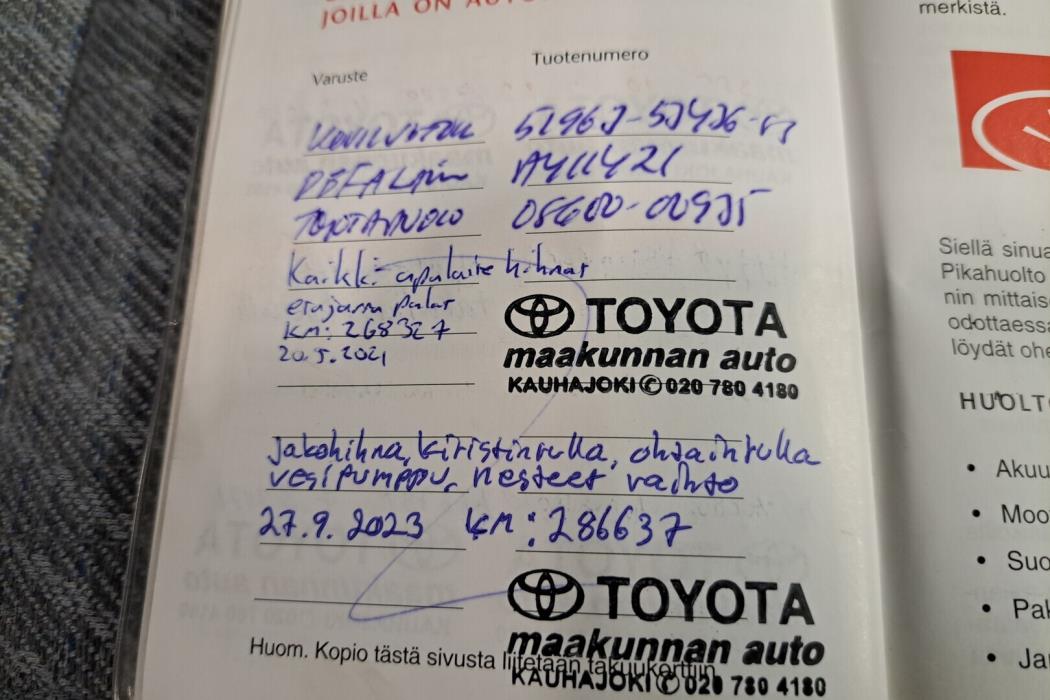 JOILLA ON
merkistä.
Varuste Tuotenumero
AY11421
08600-00935
Kaikki apulaite hihnat
etujarru palat
km: 268327
20.5.2021
TOYOTA
maakunnan auto
KAUHAJOKI 020 780 4180
Jakohihna, kiristinrulla, ohjainrulla
vesipumppu, nesteet vaihto
27.9.2023 km: 286637
TOYOTA
maakunnan auto
KAUHAJOKI 020 780 4180
Huom. Kopio tästä sivusta liitetään takuukorttiin
Siellä sinua
Pikahuolto
nin mittais
odottaessa
löydät ohe
HUOLTO
• Akuu
• Moo
• Suo
• Pak
• Ja